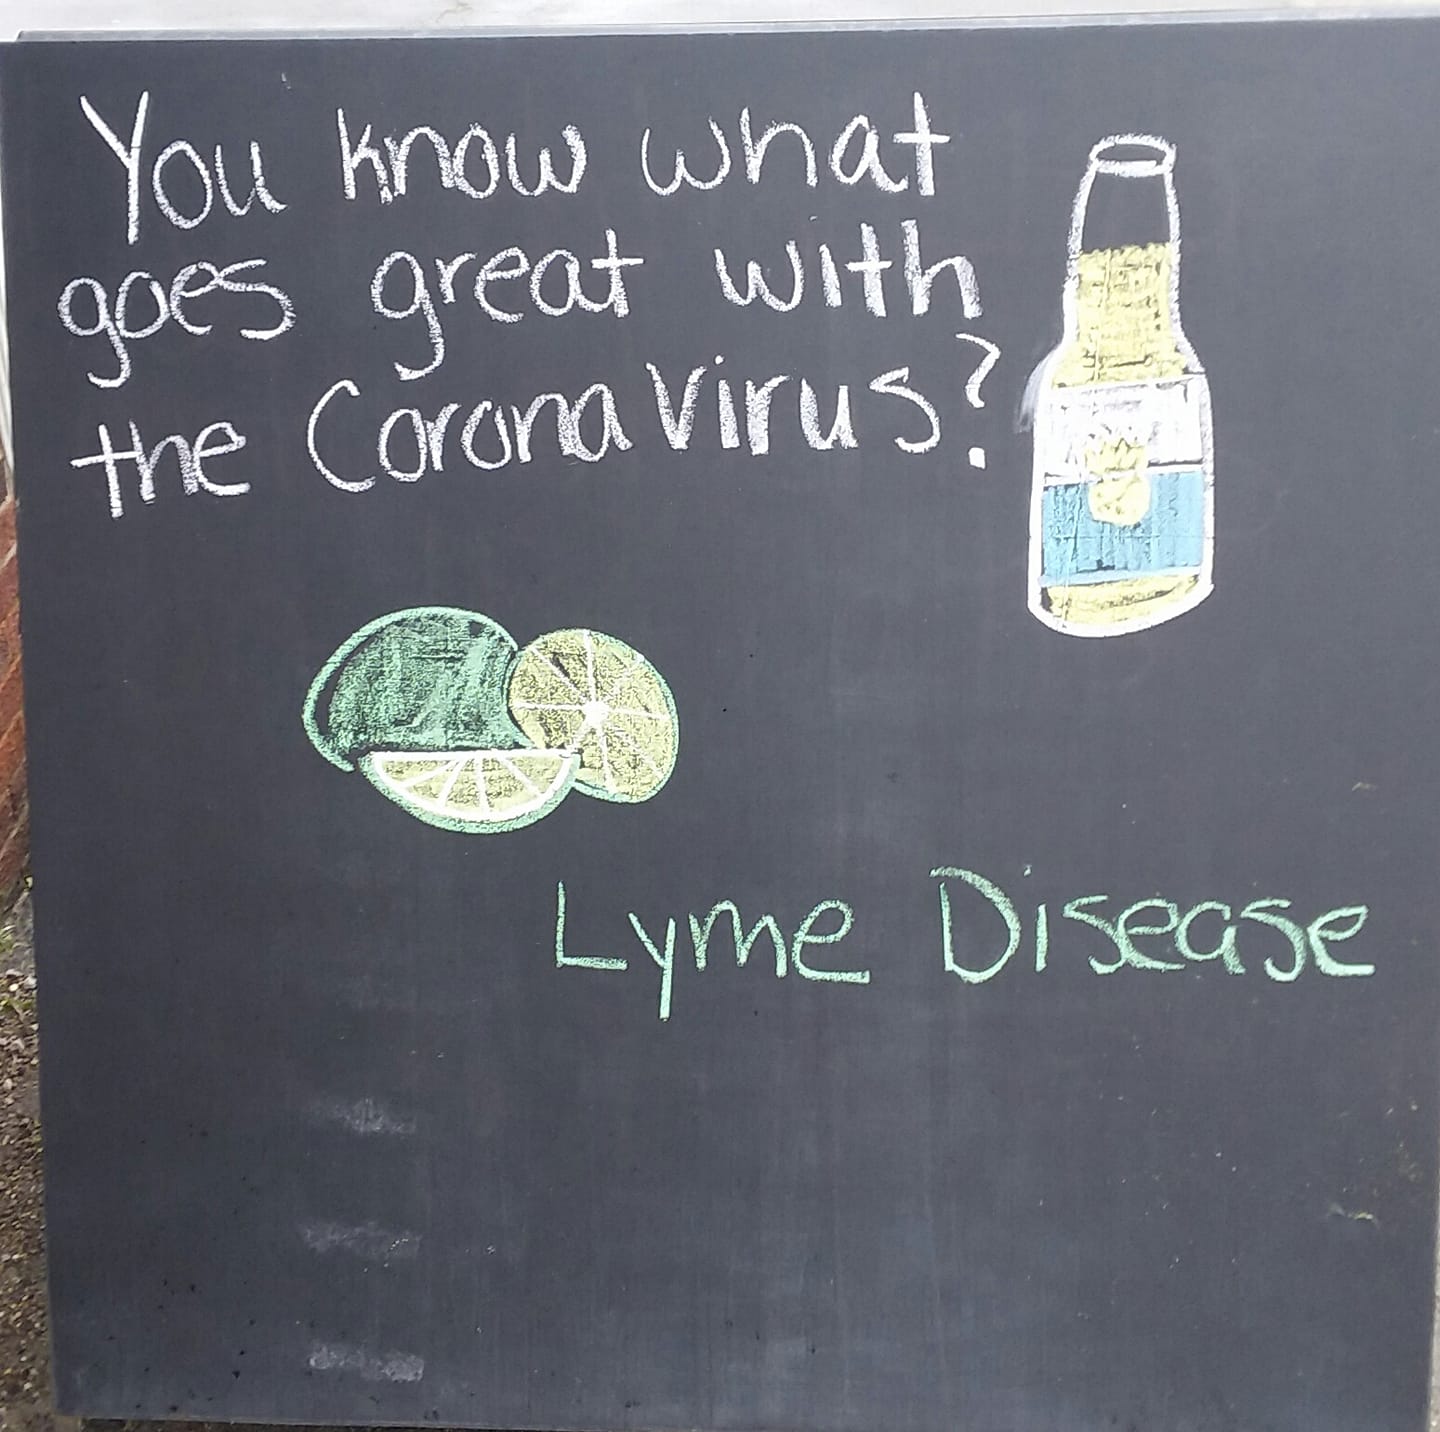 You know what
goes great with
the Corona Virus?
Lyme Disease